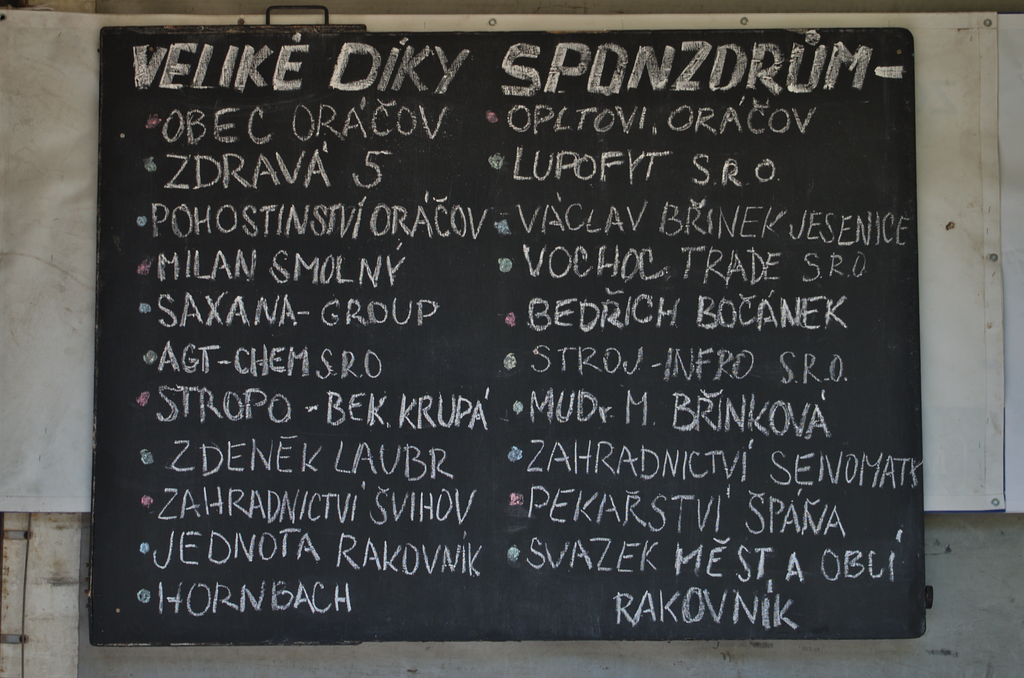 VELIKÉ DÍKY SPONZORŮM-
OBEC ORÁČOV
ZDRAVÁ 5
POHOSTINSTVÍ ORÁČOV
MILAN SMOLNÝ
SAXANA-GROUP
AGT-CHEM S.R.O
STROPO-BEK. KRUPÁ
ZDENĚK LAUBR
ZAHRADNICTVÍ ŠVIHOV
JEDNOTA RAKOVNÍK
HORNBACH
OPLTOVI. ORÁČOV
LUPOFYT S.R.O.
VÁCLAV BŘINEK JESENICE
VOCHOC TRADE S.R.O.
BEDŘICH BOČÁNEK
STROJ-INFRO S.R.O.
MUDr. M. BŘÍNKOVÁ
ZAHRADNICTVÍ SENOMATY
PEKAŘSTVÍ ŠPÁŇA
SVAZEK MĚST A OBCÍ
RAKOVNÍK